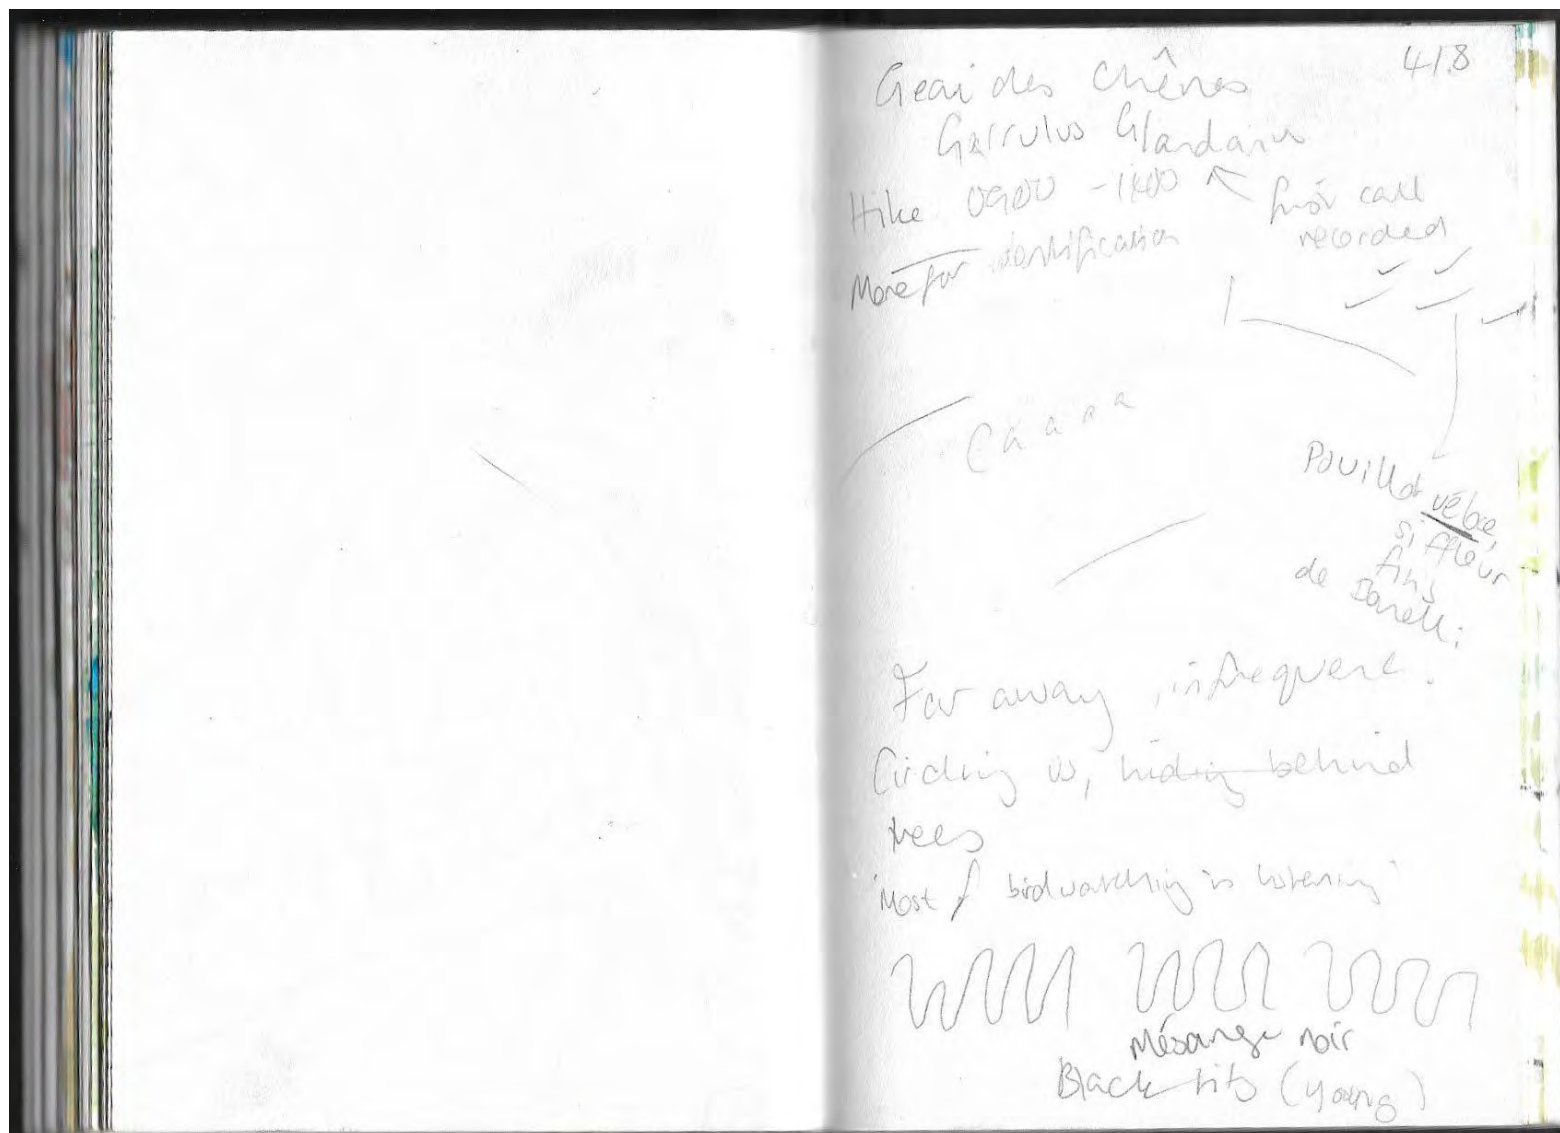 41.8
Geai des Chênes
Garrulus Glandarius
Hike 0900 - 1400
first call
recorded
More for identification
Caaaa
Pouillot véloce,
siffleur
fitis
de Bonelli;
Far away, infrequent.
Circling us, hiding behind
trees
'Most of birdwatching is listening'
Mésange noir
Black tits (young)